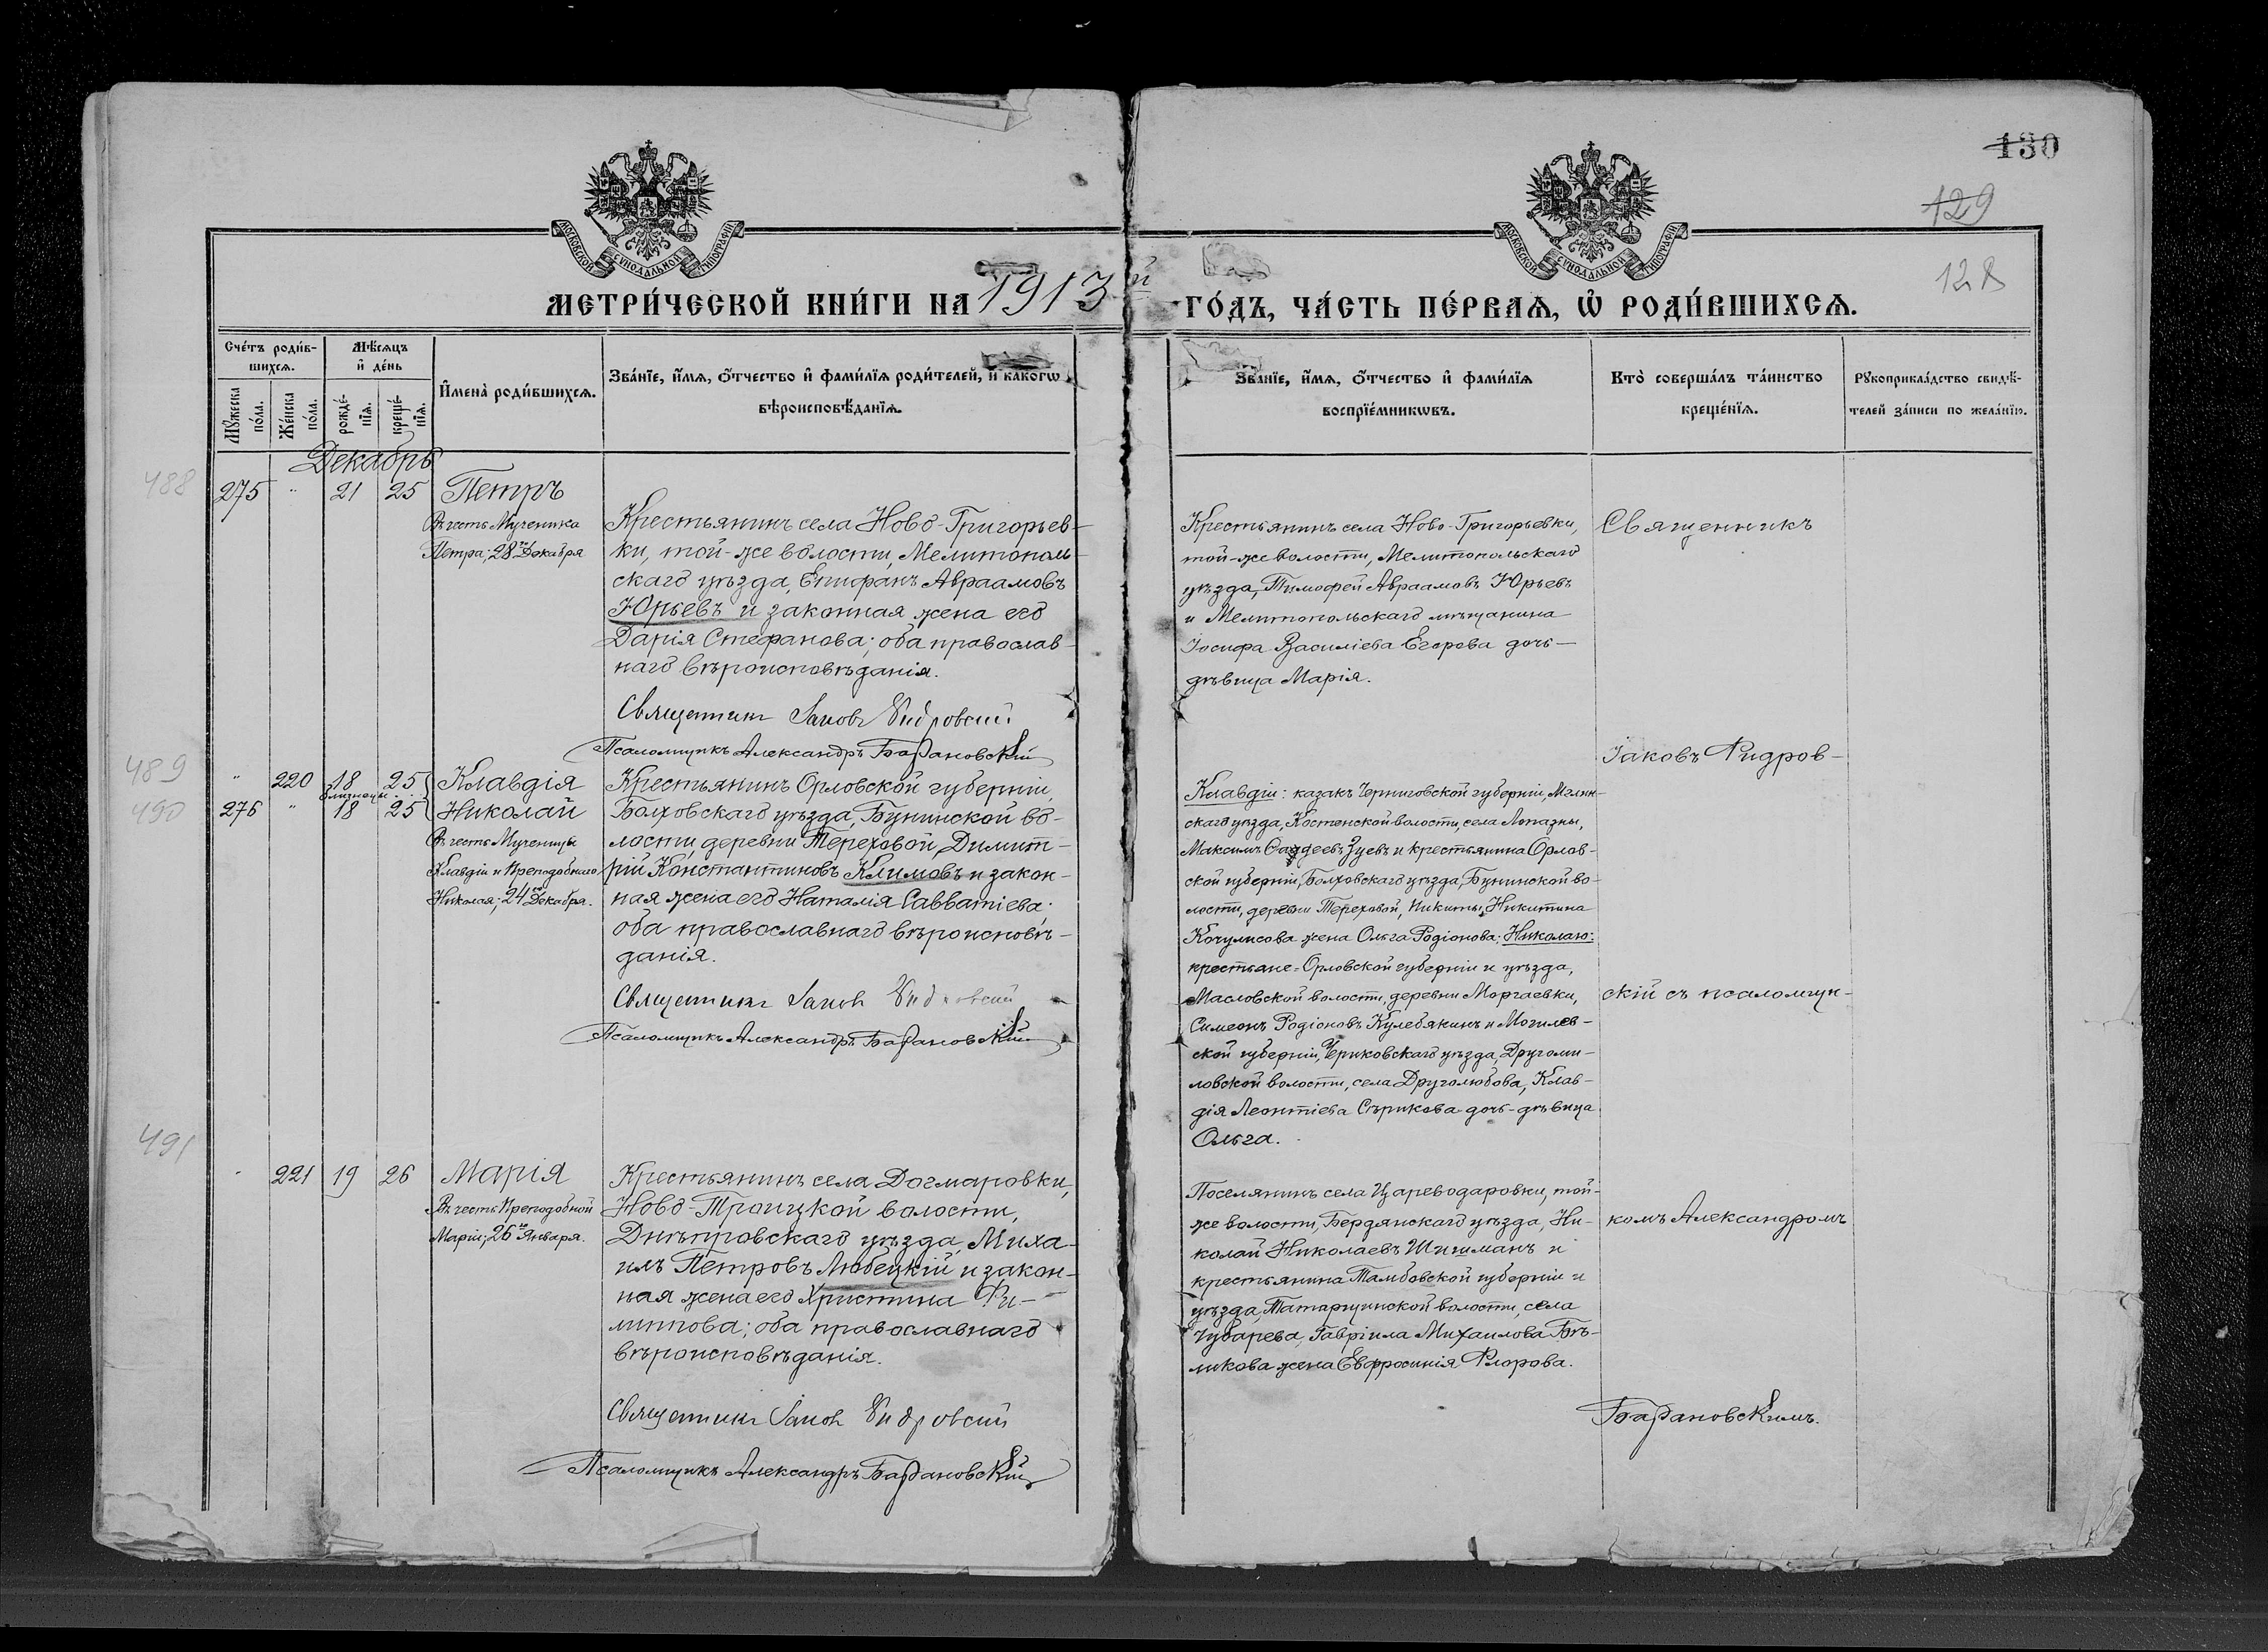 130
129
128
МОСКОВСКОЙ СѴНОДАЛЬНОЙ ТИПОГРАФІИ
МОСКОВСКОЙ СѴНОДАЛЬНОЙ ТИПОГРАФІИ
МЕТРИ́ЧЕСКОЙ КНИ́ГИ НА 1913й ГО́ДЪ, ЧА́СТЬ ПЕ́РВАЯ, Ѡ҆ РОДИ́ВШИХСЯ.
Сче́тъ роди́в-
шихся.
Мѣ́сяцъ
и҆ де́нь
Му́жеска по́ла.
Же́нска по́ла.
рожде́-
нїя.
креще́-
нїя.
И҆мена̀ роди́вшихся.
Зва́нїе, и҆́мя, ѻ҆́тчество и҆ фами́лїя роди́телей, и҆ како́гѡ
вѣроисповѣ́данїя.
Зва́нїе, и҆́мя, ѻ҆́тчество и҆ фами́лїя
воспрїе́мникѡвъ.
Кто̀ соверша́лъ та́инство
креще́нїя.
Рукоприкла́дство свидѣ́-
телей за́писи по жела́нїю.
Декабрь
488
275 " 21 25 Петръ
Въ честь Мученика
Петра; 28го Декабря
Крестьянинъ села Ново-Григорьев-
ки, той-же волости, Мелитополь-
скаго уѣзда, Епифанъ Авраамовъ
Юрьевъ и законная жена его
Дарія Стефанова; оба православ-
наго вѣроисповѣданія.
Священникъ Іаковъ Ѳидровскій
Псаломщикъ Александръ Барановскій
Крестьянинъ села Ново-Григорьевки,
той-же волости, Мелитопольскаго
уѣзда, Тимофей Авраамовъ Юрьевъ
и Мелитопольскаго мѣщанина
Іосифа Василіева Егорова дочь-
дѣвица Марія.
Священникъ
Іаковъ Ѳидров-
489
" 220 18 25 Клавдія
близнецы
490
276 " 18 25 Николай
Въ честь Мученицы
Клавдіи и Преподобнаго
Николая; 24го Декабря.
Крестьянинъ Орловской губерніи,
Болховскаго уѣзда, Бунинской во-
лости, деревни Тереховой, Димит-
рій Константиновъ Климовъ и закон-
ная жена его Наталія Савватіева;
оба православнаго вѣроисповѣ-
данія.
Священникъ Іаковъ Ѳидровскій
Псаломщикъ Александръ Барановскій
Клавдіи: казакъ Черниговской губерніи, Мглин-
скаго уѣзда, Костенской волости, села Лопазны,
Максимъ Зуевъ и крестьянина Орлов-
ской губерніи, Болховскаго уѣзда, Бунинской во-
лости, деревни Тереховой, Никиты Никитина
жена Ольга Родіонова; Николаю:
крестьяне-Орловской губерніи и уѣзда,
Масловской волости, деревни Моргаевки,
Симеонъ Родіоновъ Кулебякинъ и Могилев-
ской губерніи, Чериковскаго уѣзда, Другоми-
ловской волости, села Друголюбова, Клав-
дія Леонтіева Сѣрикова дочь-дѣвица
Ольга.
скій съ псаломщи-
491
" 221 19 26 Марія
Въ честь Преподобной
Маріи; 26го Января.
Крестьянинъ села Догмаровки,
Ново-Троицкой волости,
Днѣпровскаго уѣзда, Миха-
илъ Петровъ Любецкій и закон-
ная жена его Христина Фи-
липпова; оба православнаго
вѣроисповѣданія.
Священникъ Іаковъ Ѳидровскій
Псаломщикъ Александръ Барановскій
Поселянинъ села Цареводаровки, той-
же волости, Бердянскаго уѣзда, Ни-
колай Николаевъ Шишманъ и
крестьянина Тамбовской губерніи и
уѣзда, Татарщинской волости, села
Чубарева, Гавріила Михаилова Бѣ-
ликова жена Евфросинія Флорова.
комъ Александромъ
Барановскимъ.